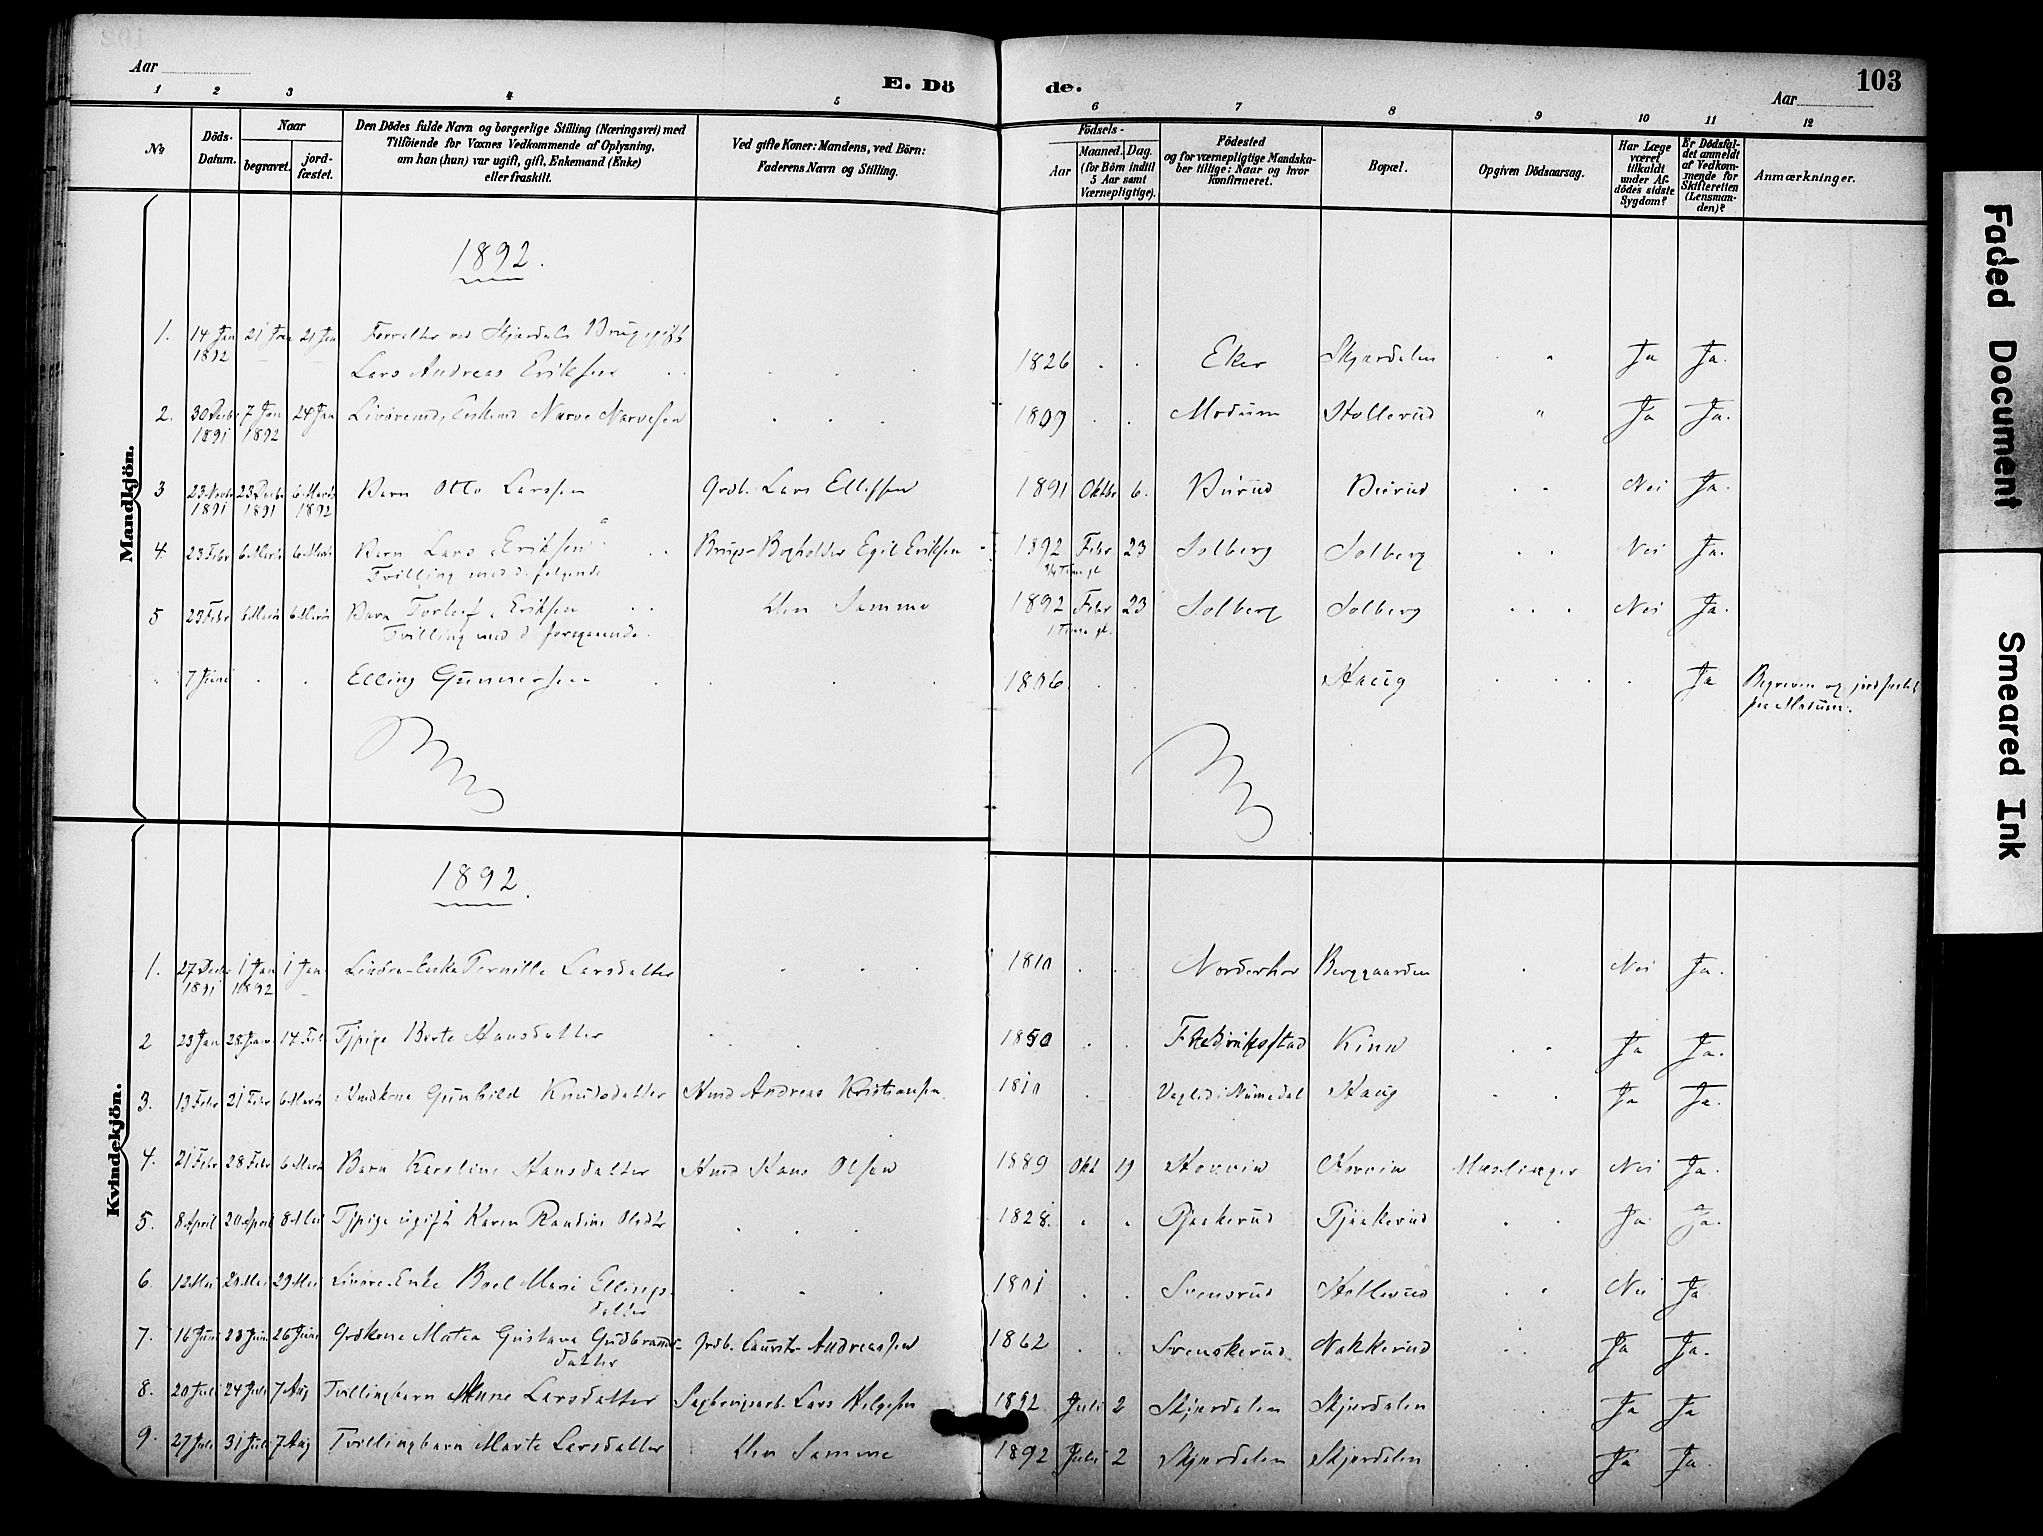 Aar
E. Dö
de.
103
Aar
1 2 3 4 5 6 7 8 9 10 11 12
No
Döds-
Datum.
Naar
begravet.
jord-
fæstet.
Den Dödes fulde Navn og borgerlige Stilling (Næringsvei) med
Tilföiende for Voxnes Vedkommende af Oplysning,
om han (hun) var ugift, gift, Enkemand (Enke)
eller fraskilt.
Ved gifte Koner: Mandens, ved Börn:
Faderens Navn og Stilling.
Födsels-
Aar
Maaned.
Dag.
(for Börn indtil
5 Aar samt
Værnepligtige).
Födested
og for værnepligtige Mandska-
ber tillige: Naar og hvor
konfirmeret.
Bopæl.
Opgiven Dödsaarsag.
Har Læge
været
tilkaldt
under Af-
dödes sidste
Sygdom?
Er Dödsfal-
det anmeldt
af Vedkom-
mende for
Skifteretten
(Lensman-
den)?
Anmærkninger.
Mandkjön.
1892.
1. 14 Jan 21 Jan 21 Jan Skjærdals Brug, gift
1892 Lars Andreas Eriksen 1826 Eker Skjærdalen " Ja Ja.
2. 30 Decbr 7 Jan 24 Jan Narve Narvesen 1809 Modum Hollerud " Ja Ja.
1891 1892
3 23 Novbr 23 Decbr 6 Marts Barn Otto Larssen Grdb. Lars Ellefsen 1891 Oktbr 6. Viirud Viirud Nei Ja.
1891 1891 1892
4. 23 Febr 6 Marts 6 Marts Barn Lars Eriksen Brugs-Bogholder Egil Eriksen 1892 Febr 23 Solberg Solberg Nei Ja.
Tvilling med d. følgende
5 23 Febr 6 Marts 6 Marts Barn Torleif Eriksen Den Samme 1892 Febr 23 Solberg Solberg Nei Ja.
Tvilling med d. foregaaende. 1 Time gl.
" 7 Juni Elling Gunnersen 1806 Haug Ja Begraven og jordfæstet
fra Modum.
Kvindekjön.
1892.
1. 27 Decbr 1 Jan 1 Jan Pernille Larsdatter 1810 Norderhov Berggaarden Nei Ja.
1891 1892
2 23 Jan 28 Jan 14 Feb Tjpige Berte Hansdatter 1850 Fredrikstad Kinn Ja Ja.
3. 13 Febr 21 Febr 6 Marts Hmdkone Gunhild Knudsdatter Hmd Andreas Kristiansen 1810 Numedal Haug Ja Ja.
4. 21 Febr 28 Febr 6 Marts Barn Karoline Hansdatter Hmd Hans Olsen 1889 Okt 19 Hovvin Hovvin Mæslinger Nei Ja.
5. 8 April 20 April 8 Mai Tjpige ugift Karen Randine Olsdtr 1828. Tjaakerud Tjaakerud Ja. Ja.
6. 12 Mai 20 Mai 29 Mai Enke Boel Mari Ellings- 1801 Svensrud Hollerud Nei Ja
datter
7. 16 Juni 23 Juni 26 Juni Grdkone Matea Gustava Gudbrands- Grdb. Laurits Andreassen 1862 Svenskerud Nakkerud Ja Ja.
datter
8. 20 Juli 24 Juli 7 Aug Tvillingbarn Anne Larsdatter Sagbrugsarb. Lars Helgesen 1892 Juli 2 Skjærdalen Skjærdalen Ja Ja
9. 27 Juli 31 Juli 7 Aug Tvillingbarn Marte Larsdatter Den Samme 1892 Juli 2 Skjærdalen Skjærdalen Ja Ja.
Faded Document
Smeared Ink